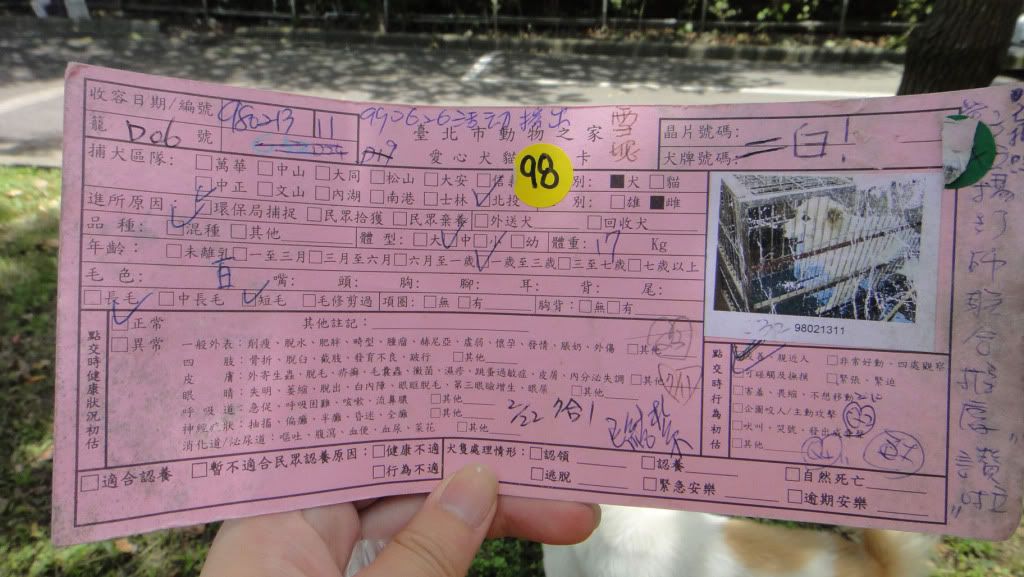 收容日期/編號 980213 11 990626 活動接出
籠 D06 號 臺北市動物之家 雪妮 晶片號碼:
愛心犬貓 卡 犬牌號碼: 二白!
98
捕犬區隊: □萬華 □中山 □大同 □松山 □大安 □信義 別: ■犬 □貓
□中正 □文山 □內湖 □南港 □士林 □北投 別: □雄 ■雌
進所原因: □環保局捕捉 □民眾拾獲 □民眾棄養 □外送犬 □回收犬
品種: □混種 □其他 體型: □大 □中 □小 □幼 體重: 17 Kg
年齡: □未離乳 □一至三月 □三月至六月 □六月至一歲 □一歲至三歲 □三至七歲 □七歲以上
毛色: 白 嘴: 頭: 胸: 腳: 耳: 背: 尾:
□長毛 □中長毛 □短毛 □毛修剪過 項圈: □無 □有 胸背: □無 □有
98021311
點交時健康狀況初估
□正常 其他註記:
□異常 一般外表: 削瘦、脫水、肥胖、畸型、腫瘤、赫尼亞、虛弱、懷孕、發情、脹奶、外傷 □其他
四肢: 骨折、脫臼、截肢、發育不良、跛行 □其他
皮膚: 外寄生蟲、脫毛、疥癬、毛囊蟲、黴菌、濕疹、跳蚤過敏症、皮屑、內分泌失調 □其他
眼睛: 失明、萎縮、脫出、白內障、眼眶脫毛、第三眼瞼增生、眼屎 □其他
呼吸道: 急促、呼吸困難、咳嗽、流鼻膿 □其他
神經症狀: 抽搐、偏癱、半癱、昏迷、全癱 □其他
消化道/泌尿道: 嘔吐、腹瀉、血便、血尿、菜花 □其他
2/22
點交時行為初估
□友善、親近人 □非常好動、四處觀察
□可碰觸及撫摸 □緊張、緊迫
□害羞、畏縮、不想移動
□企圖咬人/主動攻擊
□吠叫、哭號、發出威嚇聲
□其他
□適合認養 □暫不適合民眾認養原因: □健康不適 □行為不適
犬隻處理情形: □認領 □認養 □自然死亡
□逃脫 □緊急安樂 □逾期安樂